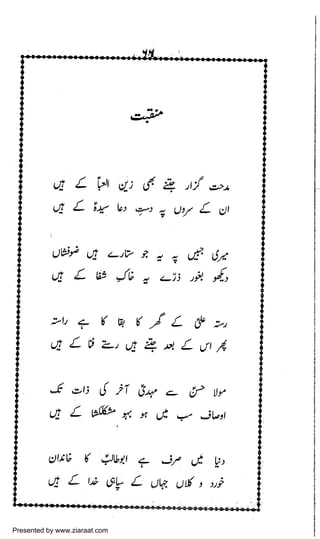 ۶۶
منقبت
مدحت گزار جتنے بھی زین العبؑا کے ہیں
ان کے سروں پہ دستِ دعا سیدہؑ کے ہیں
میری جبیں پہ یہ جو ستارے ہیں ضوفشاں
دیکھو بغور ذرّے یہ خاکِ شفا کے ہیں
رستہ علیؑ کے گھر کا بقا کا ہے راستہ
پھر اس کے بعد جتنے ہیں رستے فنا کے ہیں
مولا حسنؑ سے مہدیؑ آخر کی ذات تک
اوصاف سب میں ہو بہو مشکلکشاؑ کے ہیں
دنیا میں صرف ہے ابوطالبؑ کا خاندان
خورد و کلاں جہاں کے سپاہی خدا کے ہیں
Presented by www.ziaraat.com